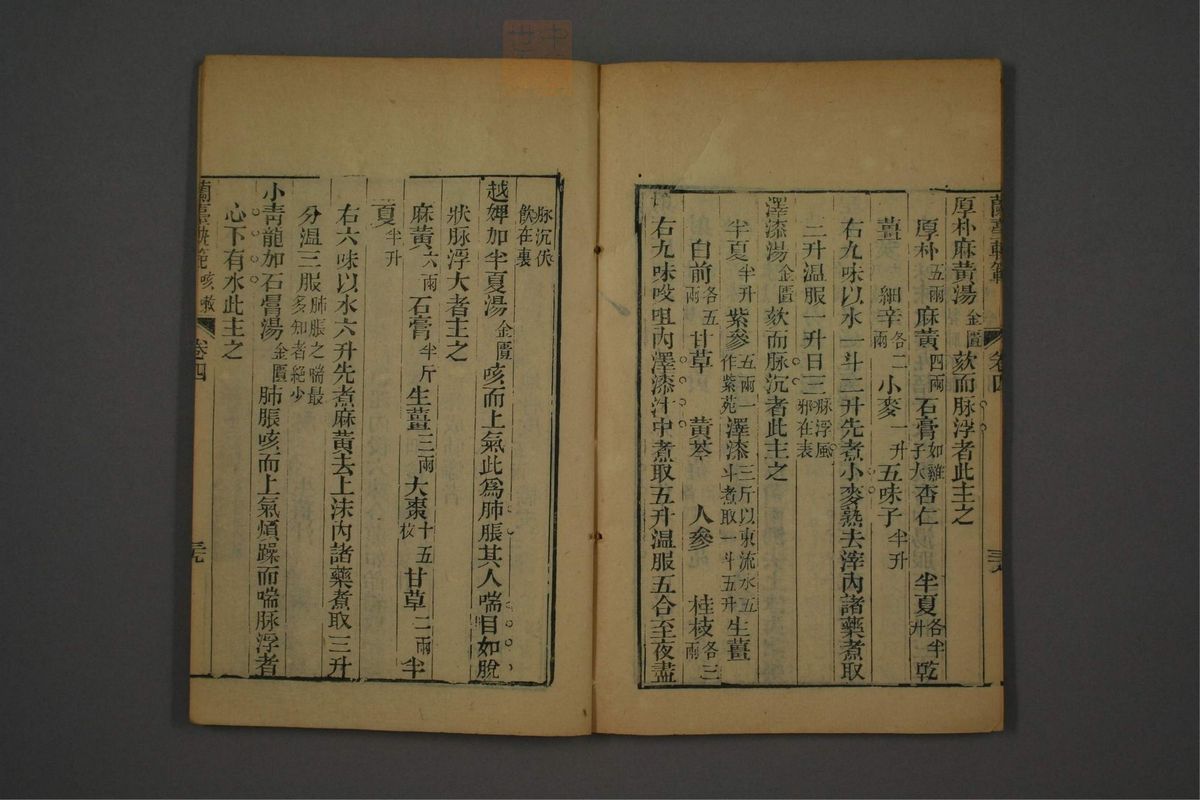 蘭臺軌範 卷四 三六
厚朴麻黃湯 金匱 欬而脉浮者此主之
厚朴 五兩 麻黃 四兩 石膏 如雞子大 杏仁 半夏 各半升 乾
薑 細辛 各二兩 小麥 一升 五味子 半升
右九味以水一斗二升先煮小麥熟去滓內諸藥煮取
三升温服一升日三 脉浮風邪在表
澤漆湯 金匱 欬而脉沉者此主之
半夏 半升 紫參 五兩一作紫苑 澤漆 三斤以東流水五斗煮取一斗五升 生薑
白前 各五兩 甘草 黃芩 人參 桂枝 各三兩
右九味㕮咀內澤漆汁中煮取五升温服五合至夜盡
脉沉伏飲在裏
越婢加半夏湯 金匱 咳而上氣此爲肺脹其人喘目如脫
狀脉浮大者主之
麻黃 六兩 石膏 半斤 生薑 三兩 大棗 十五枚 甘草 二兩 半
夏 半升
右六味以水六升先煮麻黃去上沫內諸藥煮取三升
分温三服 肺脹之喘最多知者絕少
小青龍加石膏湯 金匱 肺脹咳而上氣煩躁而喘脉浮者
心下有水此主之
蘭臺軌範 咳嗽 卷四 三七